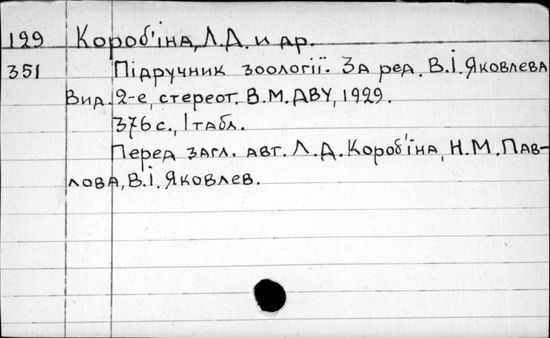 129 Короб'іна, Л.Д. и др.
351 Підручник зоології. За ред. В.І. Яковлева
Вид. 2-е, стереот. В.М. ДВУ, 1929.
376 с., 1 табл.
Перед загл. авт. Л.Д. Короб'іна, Н.М. Пав-
лова, В.І. Яковлев.